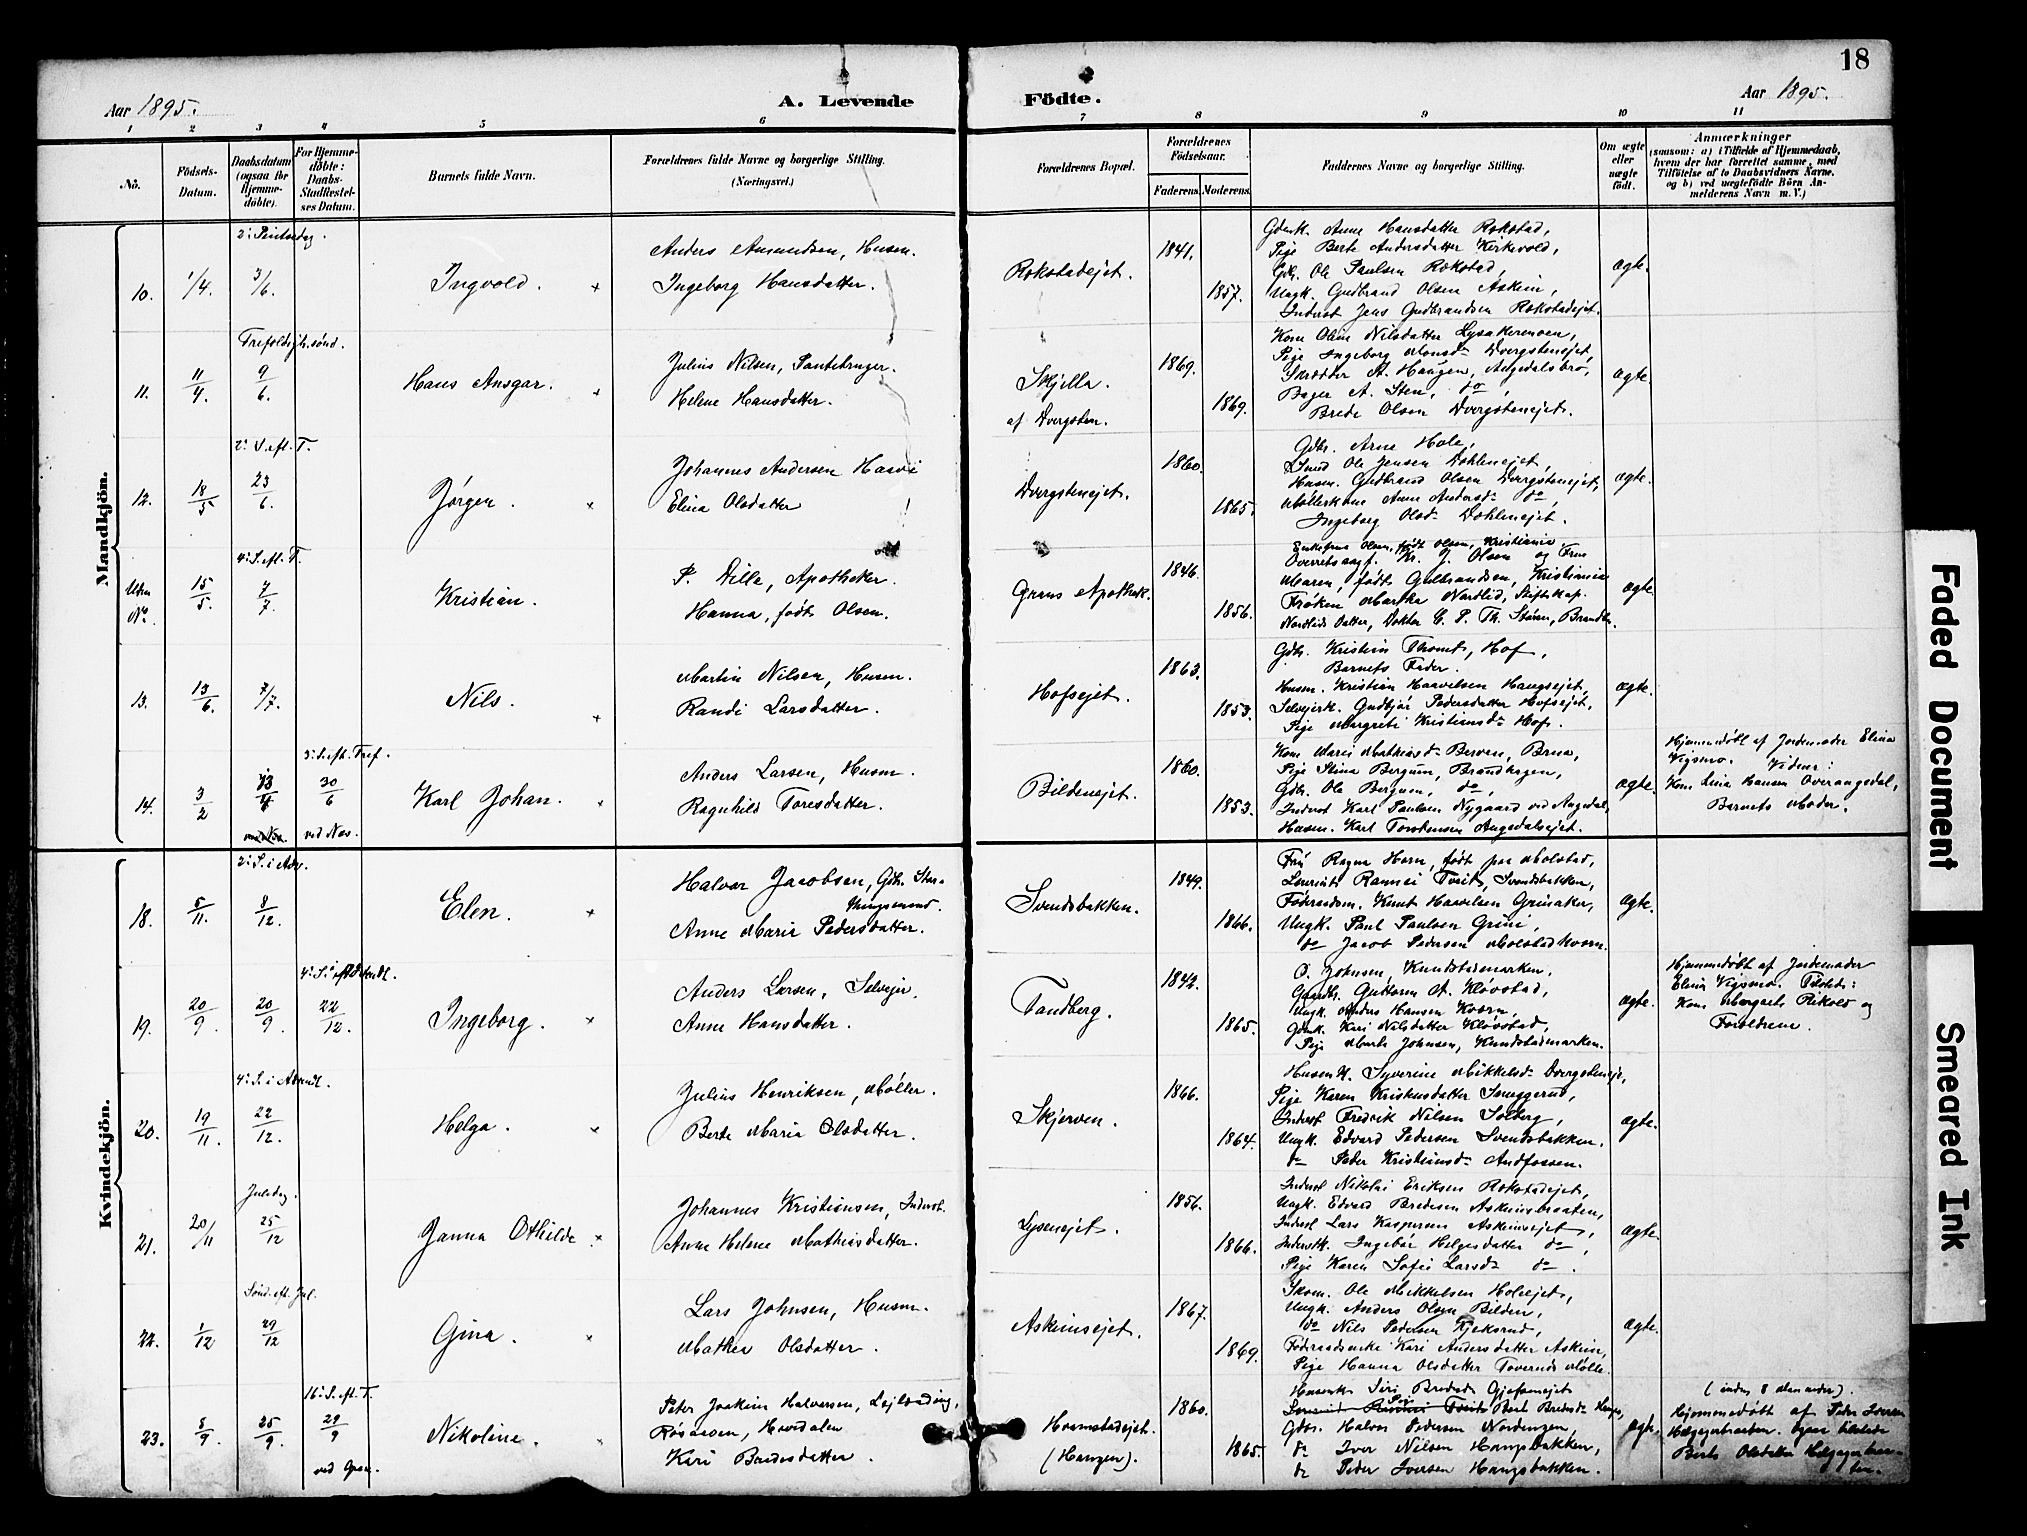 18
Aar 1895.
A. Levende Födte.
Aar 1895.
1 2 3 4 5 6 7 8 9 10 11
No.
Födsels-Datum.
Daabsdatum (ogsaa for Hjemmedöbte).
For Hjemmedöbte: Daabs-Stadfæstelses Datum.
Barnets fulde Navn.
Forældrenes fulde Navne og borgerlige Stilling. (Næringsvei.)
Forældrenes Bopæl.
Forældrenes Födselsaar.
Faderens. Moderens.
Faddernes Navne og borgerlige Stilling.
Om ægte eller uægte födt.
Anmærkninger
(saasom: a) i Tilfælde af Hjemmedaab, hvem der har forrettet samme, med Tilföielse af to Daabsvidners Navne, og b) ved uægtefödte Börn Anmelderens Navn m. V.)
Mandkjön.
2: Pintsedag.
10. 1/4. 3/6. Ingvold.
Anders Amundsen, Husm.
Ingeborg Hansdatter.
Rokstadejet.
1841.
1857.
Gdmk. Anne Hansdatter Rokstad,
Pige Berte Andersdatter Kirkevold,
Gdb. Ole Paulsen Rokstad,
Ungk. Gudbrand Olsen Askim,
Inderst Jens Gudbrandsen Rokstadejet.
ægte.
Trefoldigh. sönd.
11. 11/4. 9/6. Hans Ansgar.
Julius Nilsen, Pantebruger.
Helene Hansdatter.
Skjella.
af Dvergsten.
1869.
1869.
Kone Oline Nilsdatter Lysakermoen,
Pige Ingeborg Monsd: Dvergstenejet,
Skrædder A. Haugen, Augedalsbro,
Bager A. Sten, do,
Brede Olsen Dvergstenejet.
ægte.
2: S. eft. T.
12. 18/5 23/6. Jørgen.
Johannes Andersen Haavi
Elina Olsdatter
Dvergstenejet.
1860.
1865.
Gdbr. Arne Hole,
Ole Jensen Dahlenejet,
Husm. Gudbrand Olsen Dvergstenejet,
Møllerkone Anne Andersd: do,
Ingeborg Olsd: Dahlenejet.
ægte.
4: S. eft. T.
Uden No. 15/5. 7/7 Kristian.
P. Dille, Apotheker.
Hanna, født Olsen.
Grans Apothek.
1846.
1856.
Enkefrue Olsen, født Olsen, Kristiania,
Overretssagf. Kr. J. Olsen og Frue
Maren, født Gulbrandsen, Kristiania
Frøken Martha Nordlid, Skiftskap.
Nordlids Datter, Doktor C. P. Th. Støren, Brandbu.
ægte.
13. 13/6. 7/7. Nils.
Martin Nilsen, Husm.
Randi Larsdatter.
Hofsejet.
1863.
1853.
Gdb. Kristian Thomt, Hof,
Barnets Fader.
Husm. Kristian Haavelsen Haugsejet,
Selvejerk. Gudbjør Pedersdatter Hofsejet,
Pige Margrethe Kristiansd: Hof.
ægte.
3: S. eft. Tref.
14. 3/2 13/4 30/6 Karl Johan.
ved Næs.
Anders Larsen, Husm.
Ragnhild Toresdatter.
Bildenejet.
1860.
1853.
Kone Marie Mathiasd: Berven, Brua,
Pige Stina Bergum, Brandhagen,
Gdb. Ole Bergum, do,
Inderst Karl Paulsen Nygaard ved Augedal,
Husm. Karl Torstensen Augedalsejet.
ægte.
Hjemmedøbt af Jordemoder Elina
Vigsmo. Vidner:
Kone Lina Hansen Overaagedal,
Barnets Moder.
Kvindekjön.
2: S. i Adv.
18. 5/11. 8/12. Elen.
Halvor Jacobsen, Gdb. Stor-
thingsmand.
Anne Marie Pedersdatter.
Svendsbakken.
1849.
1866.
Fru Ragna Horn, født paa Molstad,
Lærerinde Rannei Tveit, Svendsbakken,
Føderaadsm. Knut Haavelsen Grinaker,
Ungk. Paul Paulsen Grini,
do Jacob Pedersen Molstadkvern.
ægte.
4: S. i Advendt.
19. 20/9. 20/9. 22/12. Ingeborg.
Anders Larsen, Selvejer.
Anne Hansdatter.
Tandberg.
1842.
1865.
O. Johnsen, Knudstadmarken,
Gaardbr. Guttorm A. Kløvstad,
Ungk. Anders Hansen Kvern,
Gdmk. Kari Nilsdatter Kløvstad,
Pige Marte Johnsen, Knudstadmarken.
ægte.
Hjemmedøbt af Jordemoder
Elina Vigsmo. Tilstede:
Kone Margrete Rikold og
Forældrene.
4: S. i Advendt.
20. 19/11. 22/12. Helga.
Julius Henriksen, Møller.
Berte Maria Olsdatter.
Skjerven.
1866.
1864.
Husmk. Syverine Mikkelsd: Dvergsteneje,
Pige Karen Kristensdatter Snuggerud,
Inderst Fredrik Nilsen Solberg,
Ungk. Edvard Pedersen Svendsbakken,
do Peder Kristiansd: Andfossen.
ægte.
Juledag.
21. 20/11 25/12 Janna Othilde
Johannes Kristiansen, Inderst.
Anne Helene Mathiasdatter.
Lysenejet.
1856.
1866.
Inderst Nikolai Eriksen Rokstadejet,
Ungk. Edvard Bredesen Askimsbraaten,
Inderst Lars Kaspersen Askimsejet,
Inderstk. Ingebør Helgesdatter do,
Pige Karen Sofie Larsd: do.
ægte.
Sönd. eft. Jul.
22. 1/12 29/12 Gina.
Lars Johnsen, Husm.
Mathea Olsdatter.
Askimsejet.
1867.
1869.
Skom. Ole Mikkelsen Holeejet,
Ungk. Anders Olsen Bilden,
do Nils Pedersen Kjeksrud,
Føderaadsenke Kari Andersdatter Askim,
Pige Hanna Olsdatter Toverud Mølle.
ægte.
16: S. eft. T.
23. 5/9. 25/9. 29/9 Nikoline.
ved Gran.
Peter Joakim Halvorsen, Lejlending,
Røsaasen, Hovdalen
Kari Bredesdatter.
Hvamstadejet.
(Haugen).
1860.
1865.
Husmk. Siri Bredesd: Gjefsenejet
Pige Berit Bredesd: Haugen,
Gdbr. Halvor Pedersen Nordengen,
do Iver Nilsen Haugsbakken,
do Peder Iversen Haugsbakken.
ægte.
(inden 8 Maaneder).
Hjemmedøbt af Peder Iversen
Helgagerbraaten. Ogsaa tilstede
Berte Olsdatter Helgagerbraa-
ten.
Faded Document
Smeared Ink